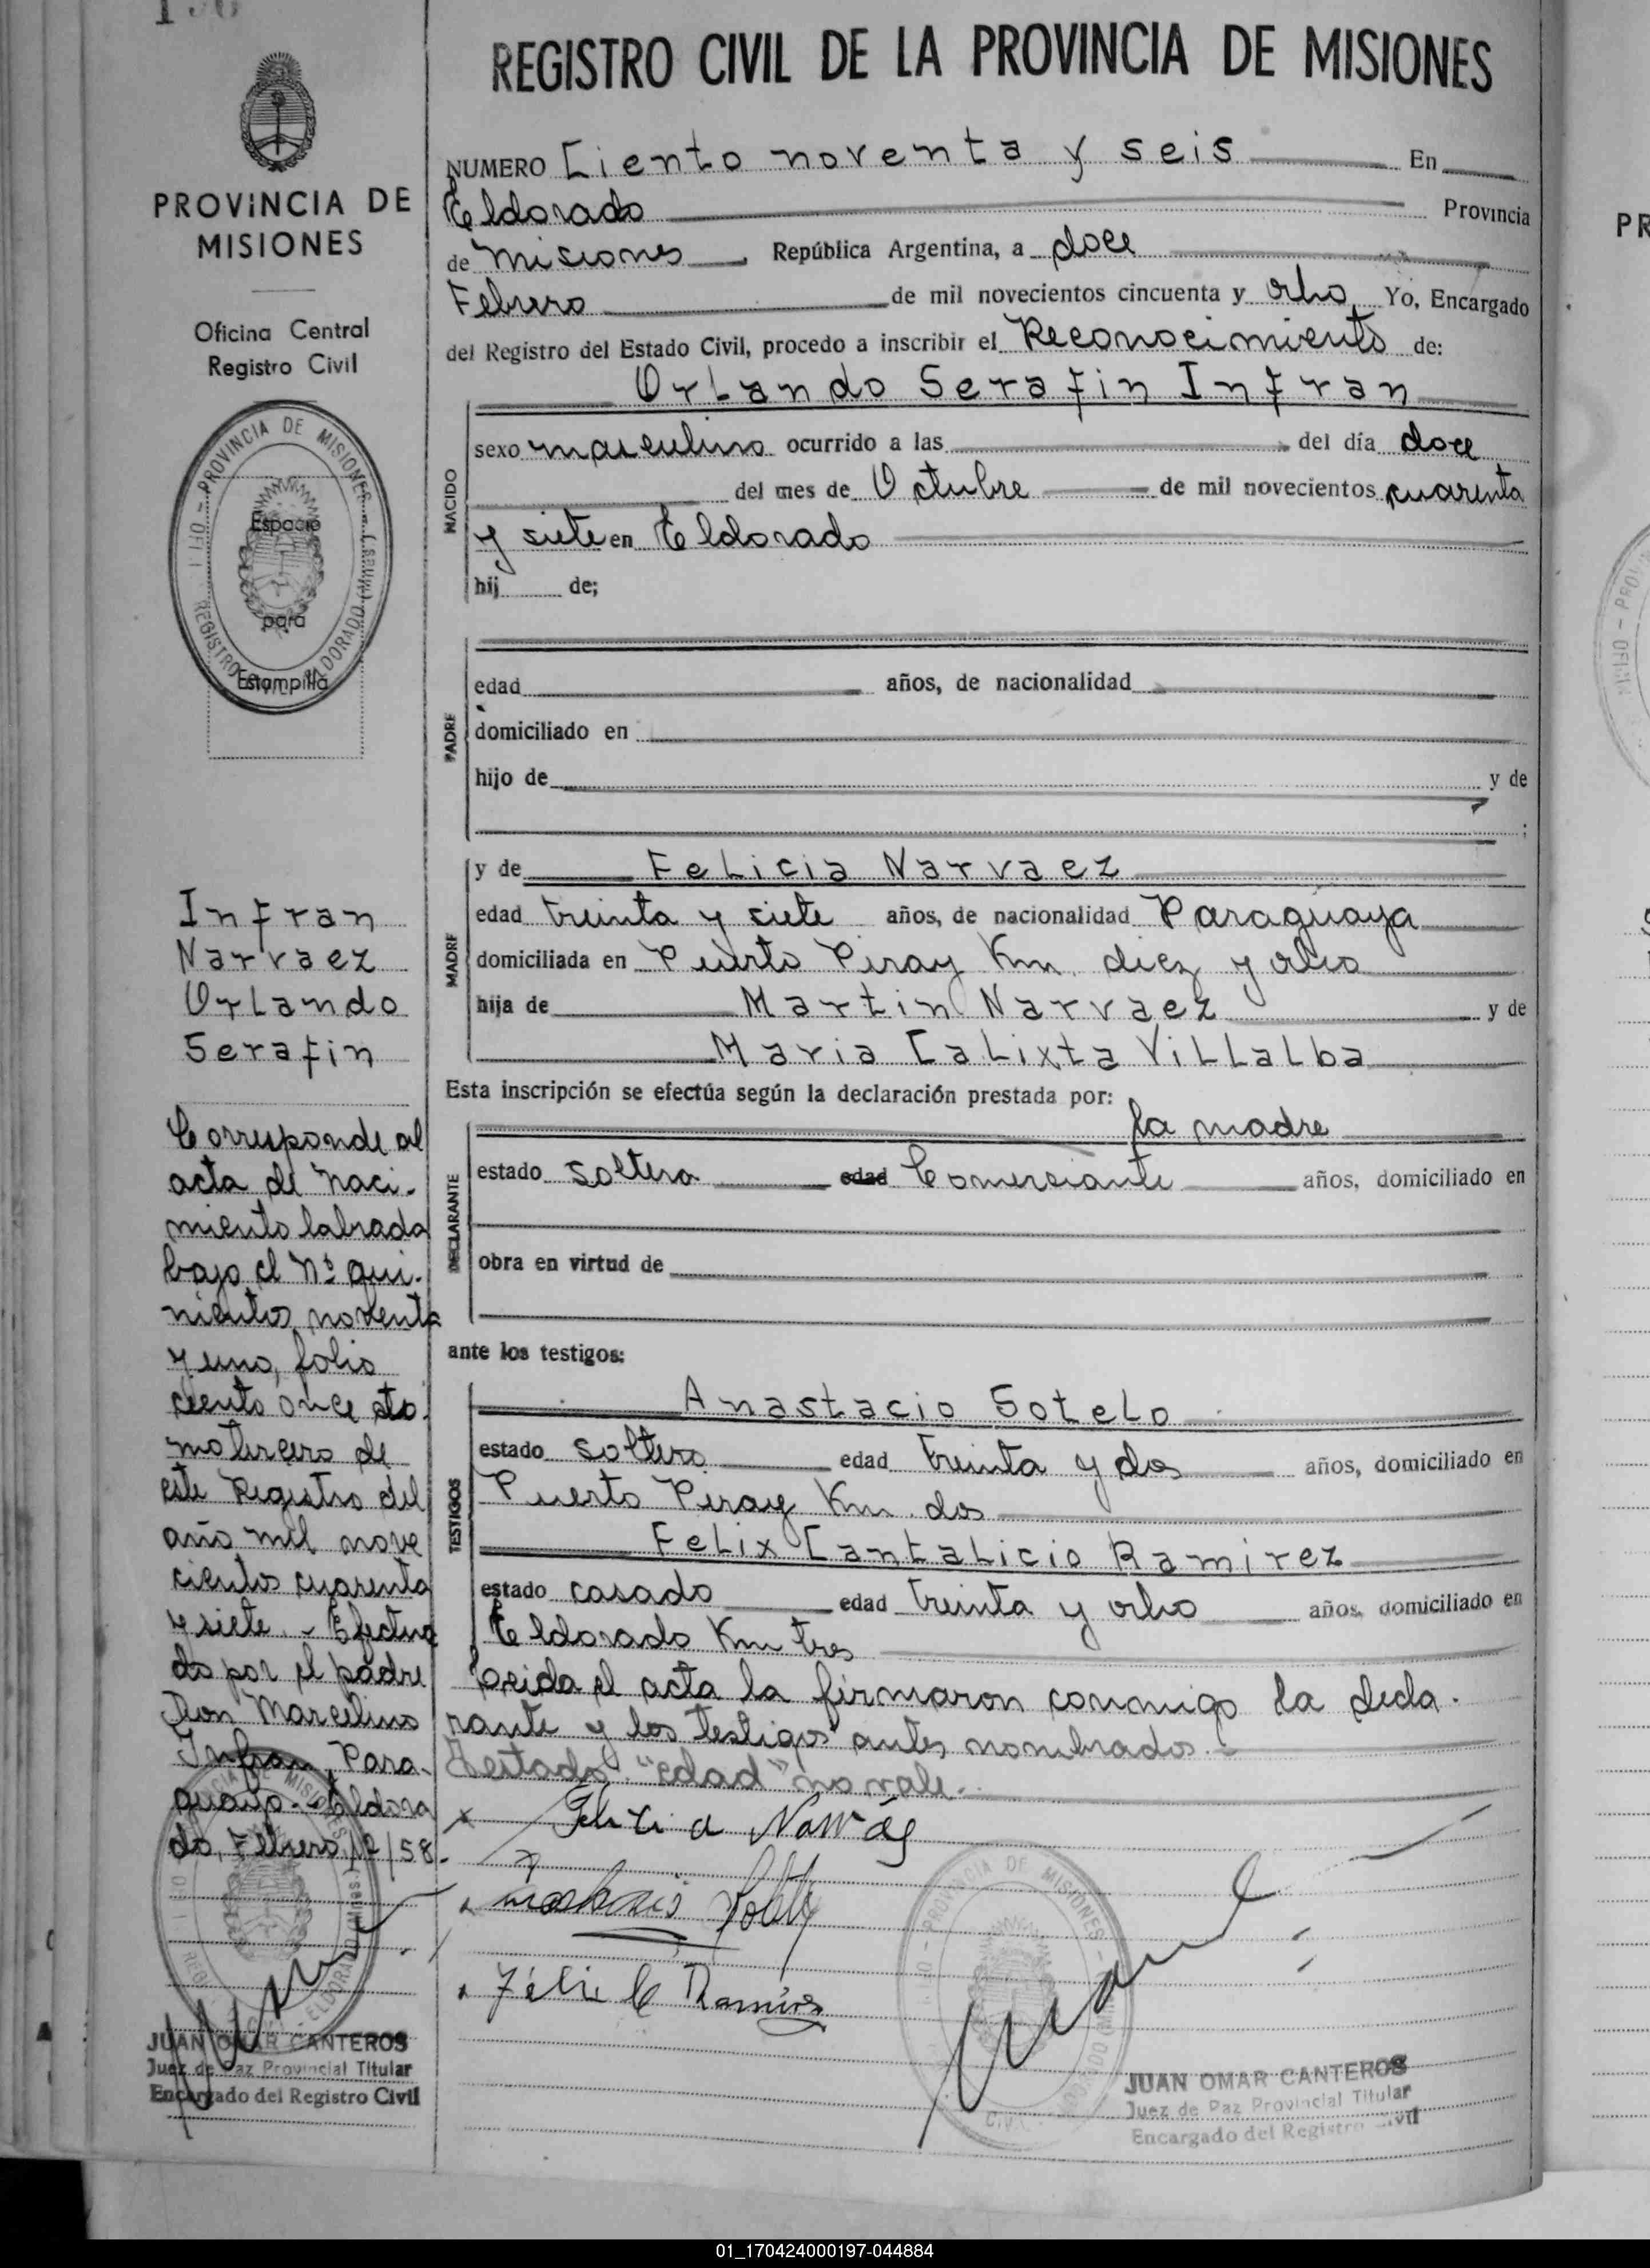 PROVINCIA DE
MISIONES
Oficina Central
Registro Civil
OFICINA - PROVINCIA DE MISIONES
REGISTRO CIVIL ELDORADO (Mnes.)
Espacio
para
Estampilla
Infran
Narvaez
Orlando
Serafin
Corresponde al
acta de Naci-
miento labrada
bajo el Nº qui-
nientos noventa
y uno, folio
ciento once to
mo tercero de
este Registro del
año mil nove
cientos cuarenta
y siete. - Efectua
do por el padre
Don Marcelino
Infran, Para-
guayo. - Eldora
do, Febrero 12/58.
JUAN OMAR CANTEROS
Juez de Paz Provincial Titular
Encargado del Registro Civil
REGISTRO CIVIL DE LA PROVINCIA DE MISIONES
NUMERO Ciento noventa y seis En
Eldorado Provincia
de Misiones, República Argentina, a doce
Febrero de mil novecientos cincuenta y ocho Yo, Encargado
del Registro del Estado Civil, procedo a inscribir el Reconocimiento de:
Orlando Serafin Infran
NACIDO
sexo masculino ocurrido a las del día doce
del mes de Octubre de mil novecientos cuarenta
y siete en Eldorado
hij de;
PADRE
edad años, de nacionalidad
domiciliado en
hijo de y de
;
MADRE
y de Felicia Narvaez
edad treinta y siete años, de nacionalidad Paraguaya
domiciliada en Puerto Piray Km. diez y ocho
hija de Martin Narvaez y de
Maria Calixta Villalba
Esta inscripción se efectúa según la declaración prestada por:
DECLARANTE
la madre
estado soltera edad Comersiante años, domiciliado en
obra en virtud de
ante los testigos:
TESTIGOS
Anastacio Sotelo
estado soltero edad treinta y dos años, domiciliado en
Puerto Piray Km. dos
Felix Cantalicio Ramirez
estado casado edad treinta y ocho años, domiciliado en
Eldorado Km tres
Leida el acta la firmaron conmigo la decla-
rante y los testigos antes nombrados.-
Testado: "edad" no vale.
Felicia Narváez
Félix C Ramirez
JUAN OMAR CANTEROS
Juez de Paz Provincial Titular
Encargado del Registro Civil
01_170424000197-044884